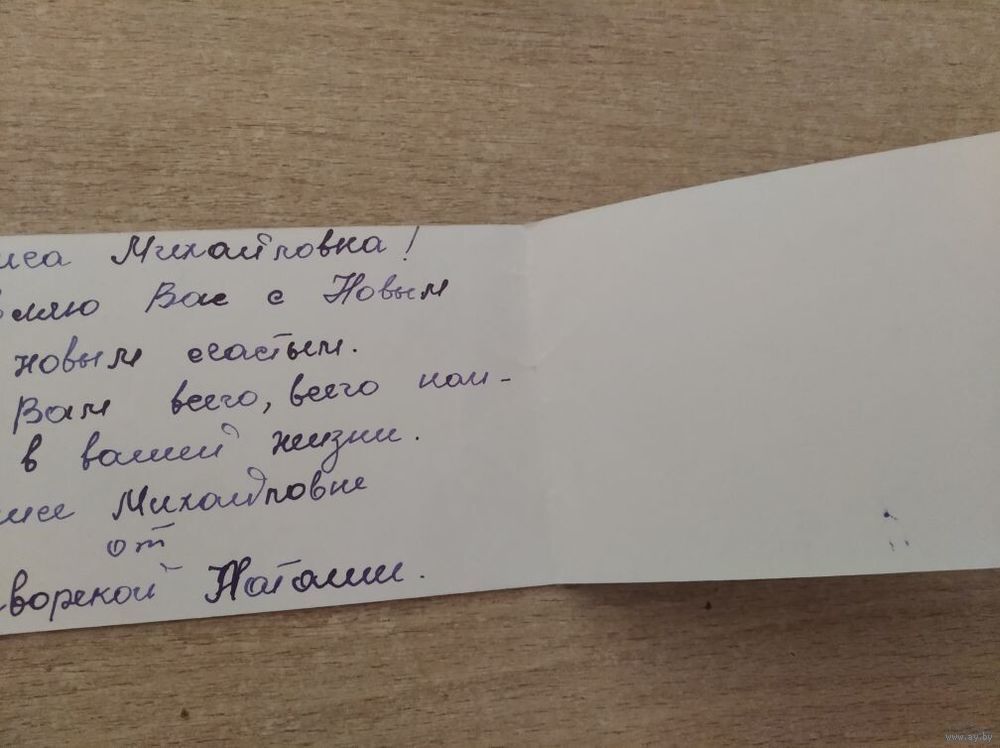 иса Михайловна!
вляю Вас с Новым
новым счастьем.
Вам всего, всего наи-
в вашей жизни.
исе Михайловне
от
ворской Наташи.
www.ay.by